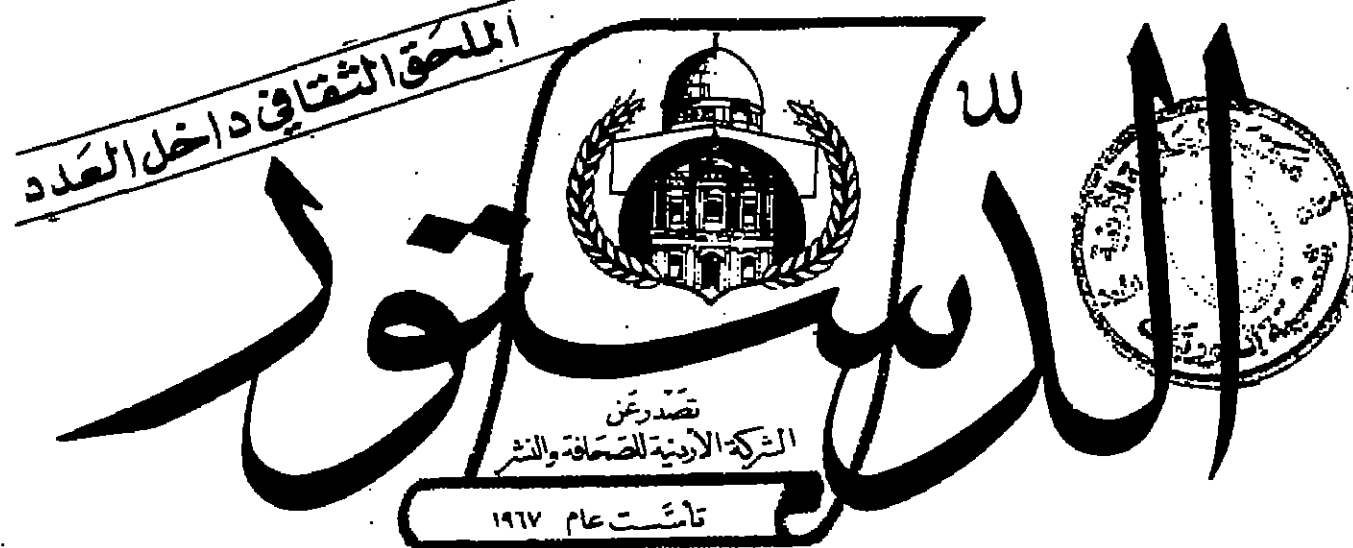 الملحق الثقافي داخل العدد
الدستور
تصدر عن
الشركة الأردنية للصحافة والنشر
تأسست عام ١٩٦٧